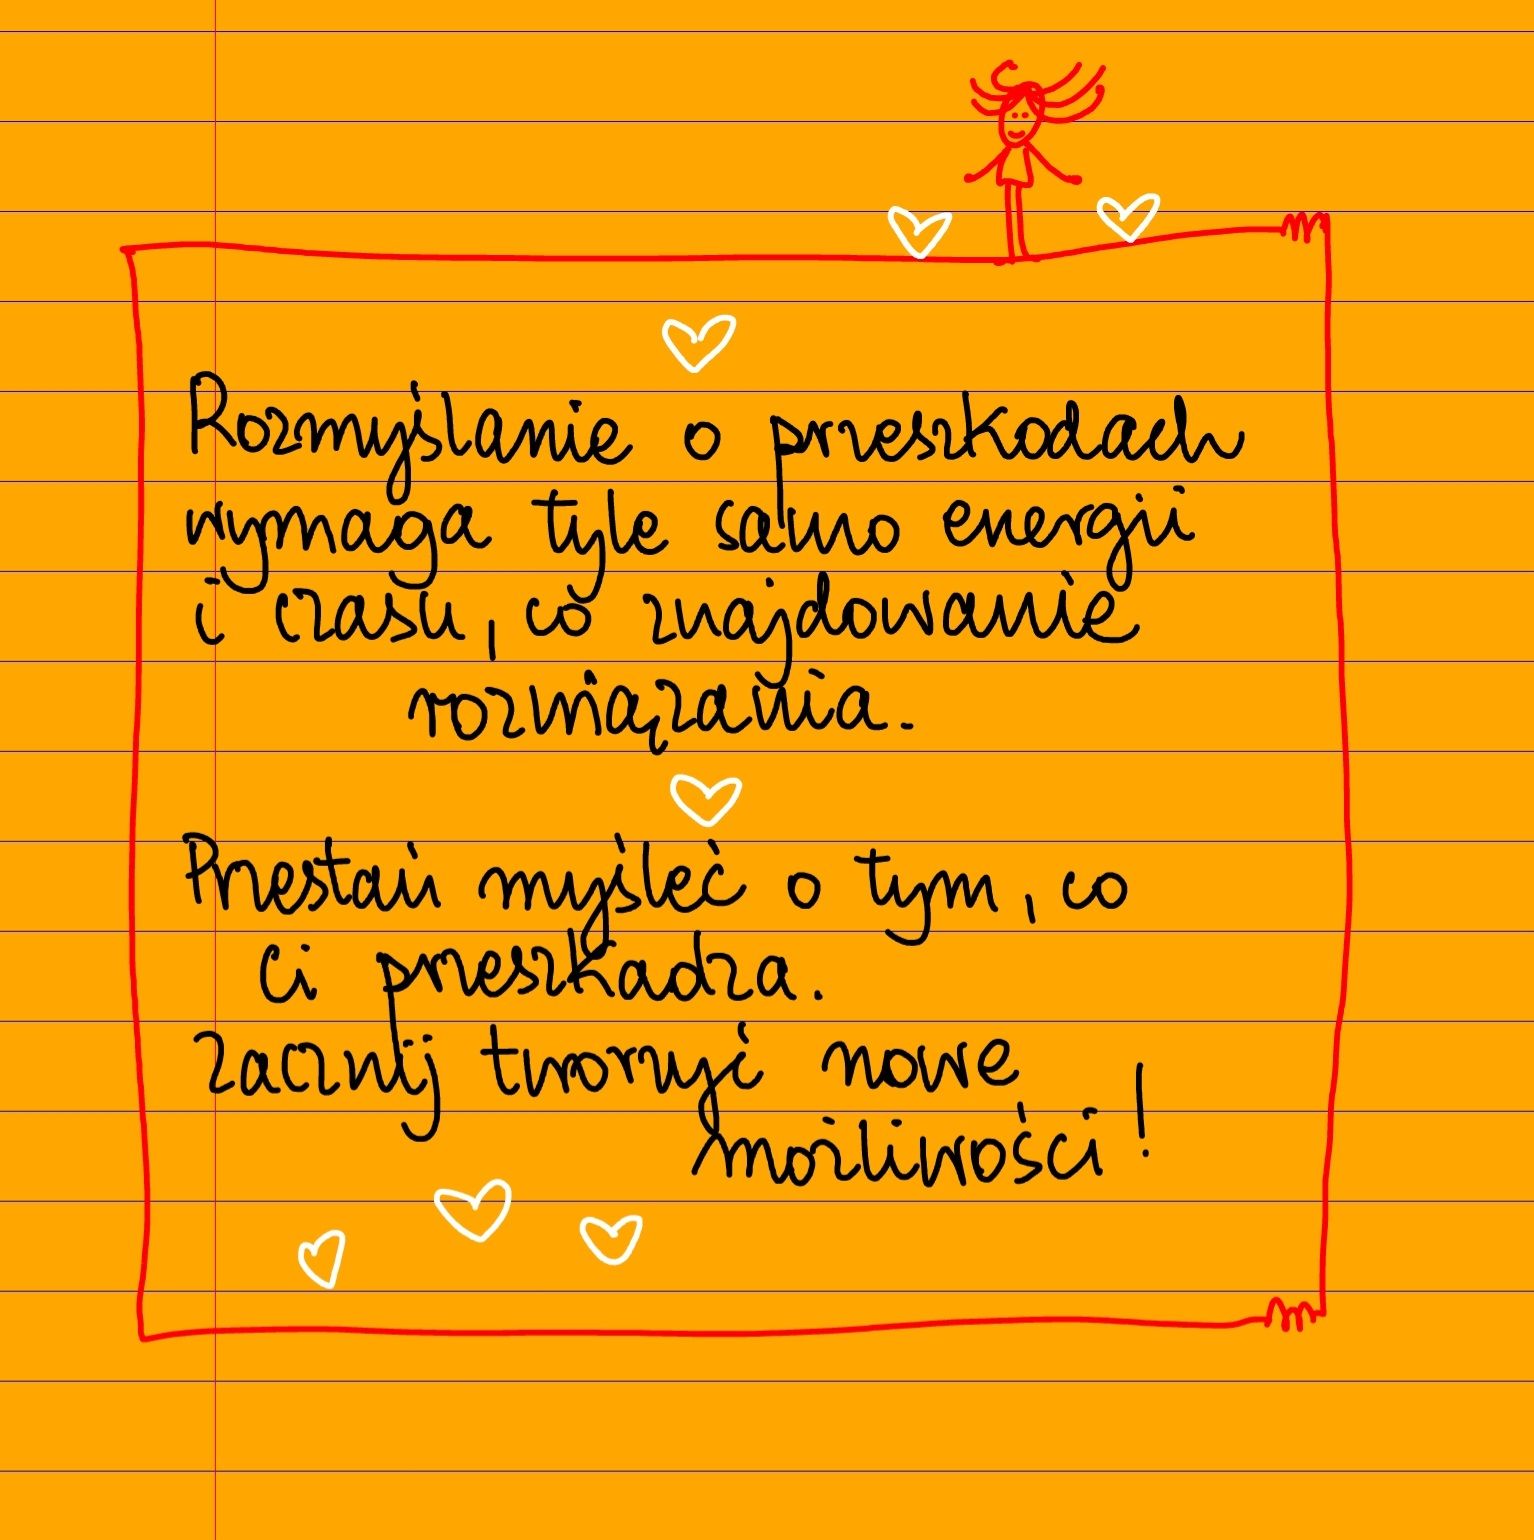 Rozmyślanie o przeszkodach
wymaga tyle samo energii
i czasu, co znajdowanie
rozwiązania.
Przestań myśleć o tym, co
ci przeszkadza.
Zacznij tworzyć nowe
możliwości!